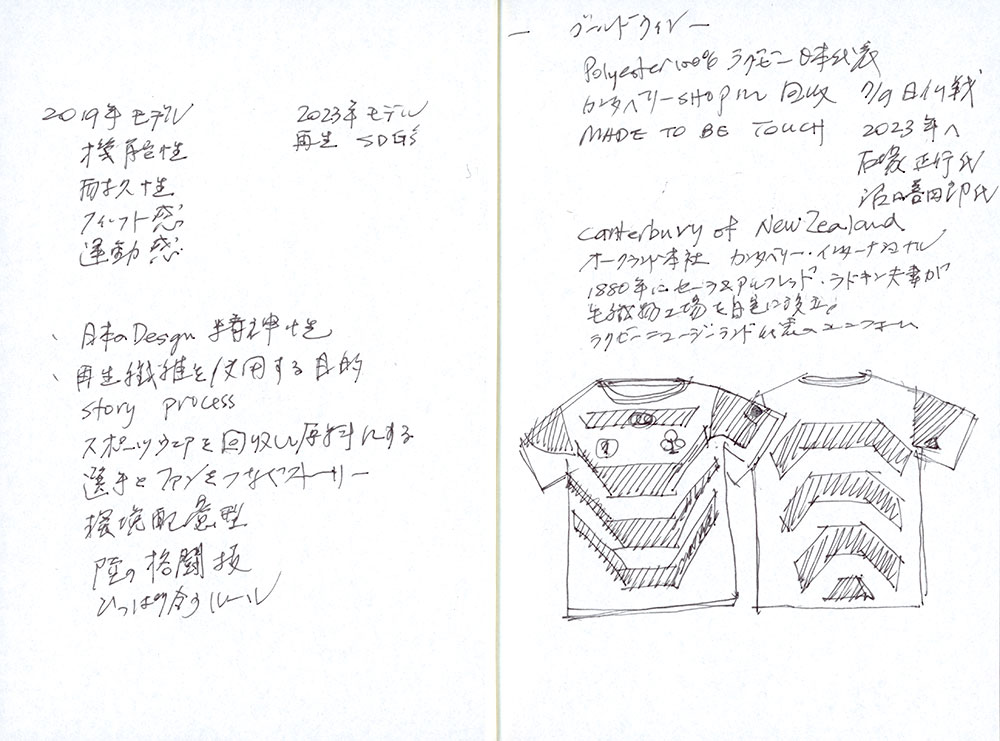 2019年 モデル
機能性
耐久性
フィット感
運動感
2023年 モデル
再生 SDGs
、日本のDesign 精神性
、再生繊維を使用する目的
Story process
スポーツウェアを回収し原料にする
選手とファンをつなぐストーリー
環境配慮型
陸の格闘技
ひっぱり合うルール
— ゴールドウイン —
Polyester100% ラグビー日本代表
カンタベリーSHOPにて 回収 7/9 日付戦
MADE TO BE TOUCH 2023年へ
石塚 正行氏
沼田喜四郎氏
Canterbury of New Zealand
オークランド本社 カンタベリー・インターナショナル
1880年に、セーラ&アルフレッド・ラドキン夫妻が
毛織物工場を自宅に設立。
ラグビーニュージーランド代表のユニフォーム